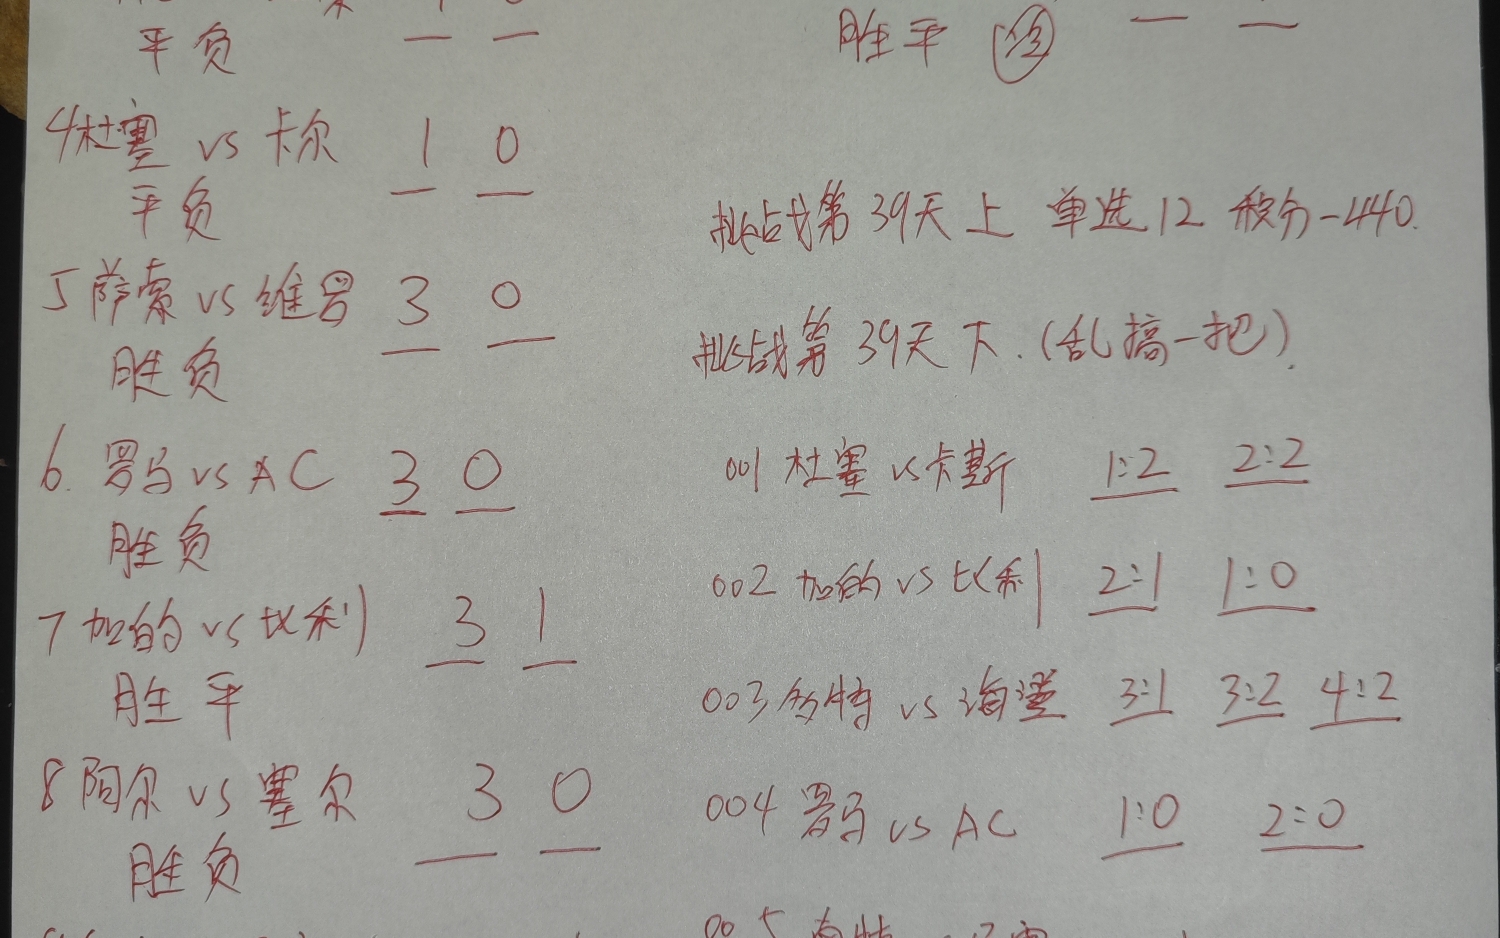 平负
4杜塞 vs 卡尔 1 0
平负
5萨索 vs 维罗 3 0
胜负
6. 罗马 vs AC 3 0
胜负
7加的 vs 比利 3 1
胜平
8阿尔 vs 塞尔 3 0
胜负
胜平
挑战第39天上 单选12 积分-440.
挑战第39天下.(乱搞一把).
001 杜塞 vs 卡斯 1:2 2:2
002 加的 vs 比利 2:1 1:0
003 多特 vs 海堡 3:1 3:2 4:2
004 罗马 vs AC 1:0 2:0
005